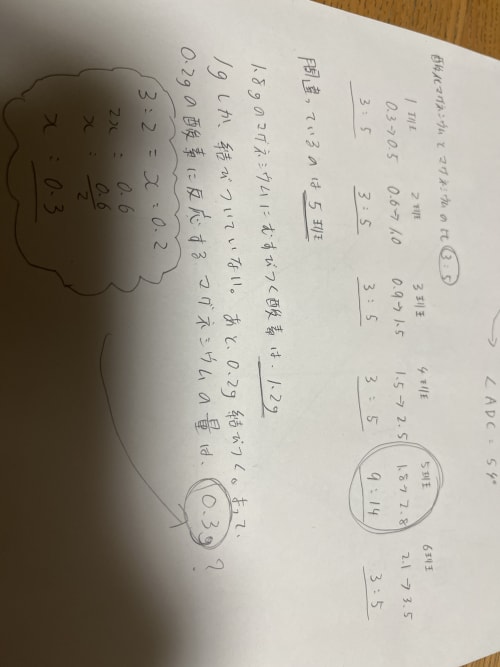 ∠ADC = 54°
酸化マグネシウムとマグネシウムの比 3:5
1班 2班 3班 4班 5班 6班
0.3→0.5 0.6→1.0 0.9→1.5 1.5→2.5 1.8→2.8 2.1→3.5
3:5 3:5 3:5 3:5 9:14 3:5
間違っているのは5班
1.8gのマグネシウムにむすびつく酸素は、1.2g
1gしか、結びついていない。あと0.2g結びつく。よって、
0.2gの酸素に反応するマグネシウムの量は、0.3g?
3:2=x:0.2
2x = 0.6
x = 0.6/2
x = 0.3